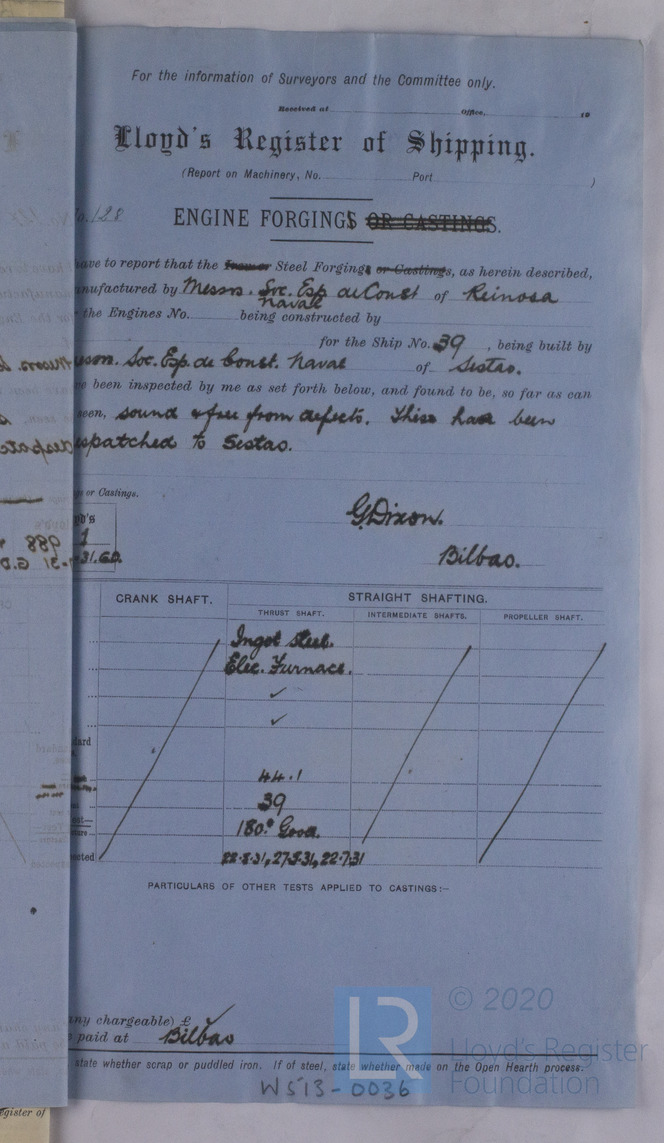 For the information of Surveyors and the Committee only.
Received at Office, 19
Lloyd's Register of Shipping.
(Report on Machinery, No. Port )
o. 128
ENGINE FORGINGS OR CASTINGS.
ave to report that the Iron or Steel Forgings or Castings, as herein described,
nufactured by Messrs. Soc. Esp. de Const Naval of Reinosa
the Engines No. being constructed by
for the Ship No. 39, being built by
Messrs. Soc. Esp. de Const. Naval of Sestao.
e been inspected by me as set forth below, and found to be, so far as can
seen, sound & free from defects. This has been
despatched to Sestao.
gs or Castings.
G. Dixon.
yd's
1
31. G.D.
Bilbao.
CRANK SHAFT. STRAIGHT SHAFTING.
THRUST SHAFT. INTERMEDIATE SHAFTS. PROPELLER SHAFT.
Ingot Steel.
Elec. Furnace.
✓
✓
dard
44.1
39
180.° Good.
cted 22-5-31, 27-5-31, 22-7-31
PARTICULARS OF OTHER TESTS APPLIED TO CASTINGS:—
ny chargeable) £
paid at Bilbao
state whether scrap or puddled iron. If of steel, state whether made on the Open Hearth process.
W513-0036
© 2020
Lloyd's Register
Foundation
egister of